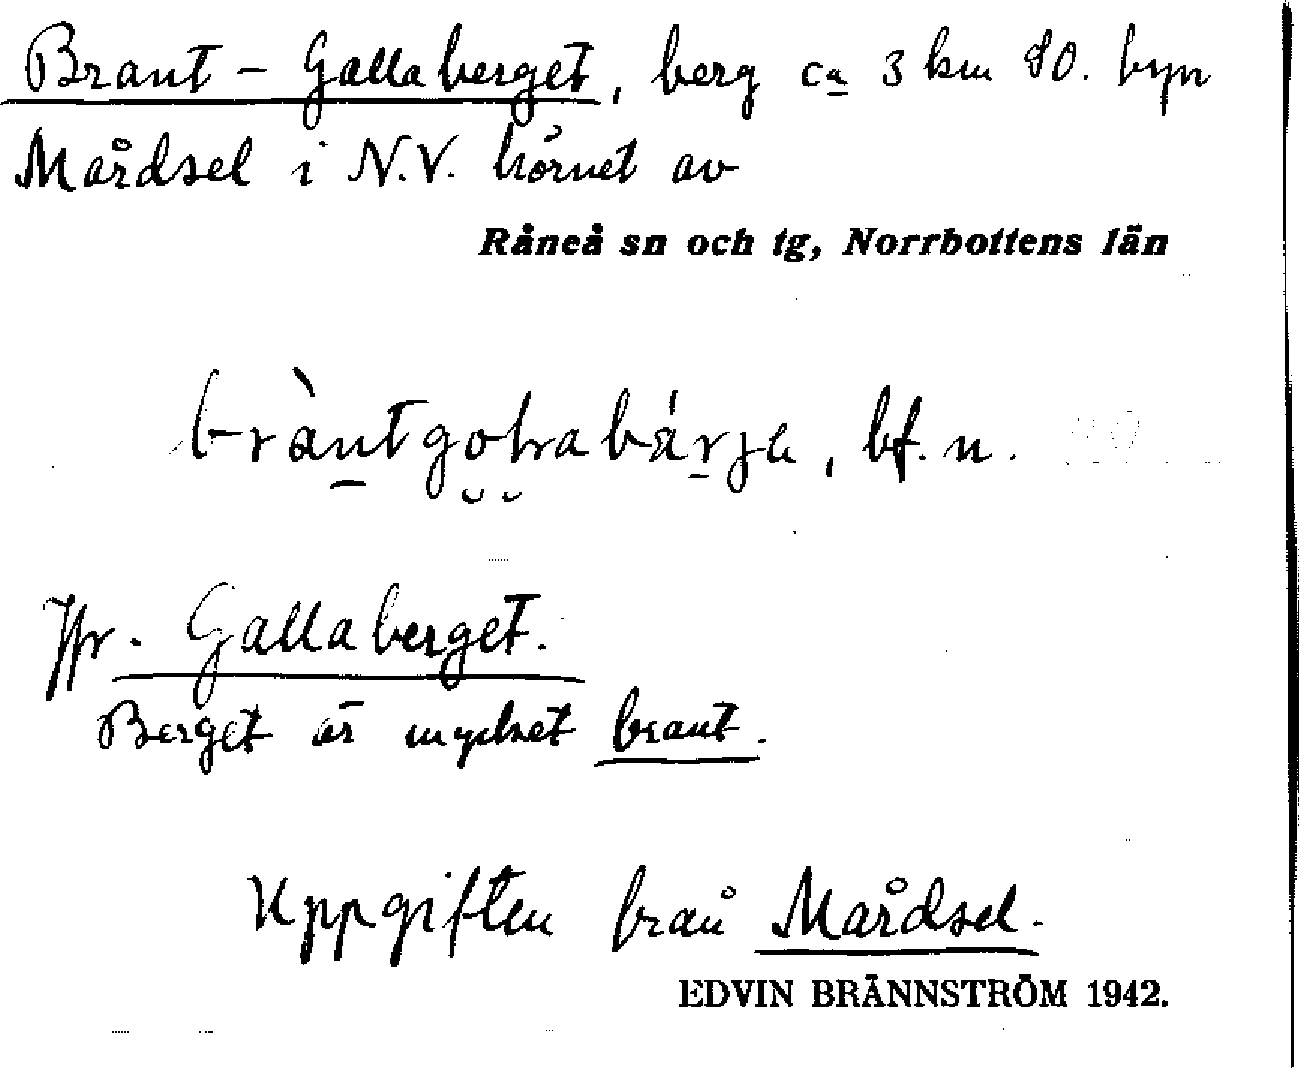 Brant-Gallaberget, berg ca 3 km SO. byn
Mårdsel i N.V. hörnet av
Råneå sn och tg, Norrbottens län
bf. n.
Jfr. Gallaberget.
Berget är mycket brant.
Uppgiften från Mårdsel.
EDVIN BRÄNNSTRÖM 1942.